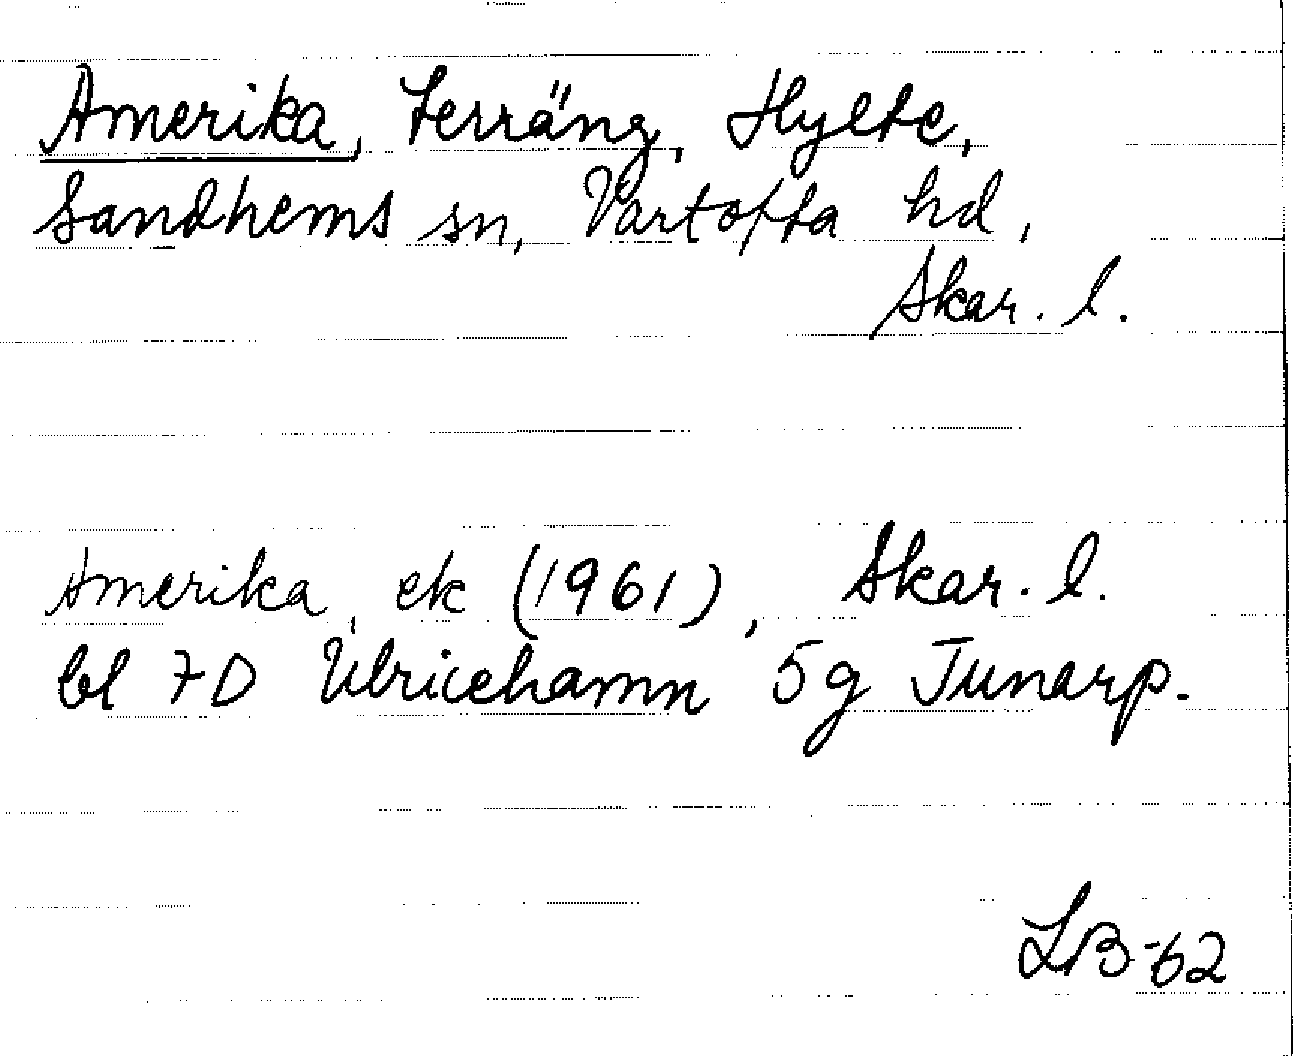 Amerika, terräng, Hylte,
Sandhems sn, Vartofta hd,
Skar. l.
Amerika, ek (1961), Skar. l.
bl 7D Ulricehamn 5g Junarp.
LB-62